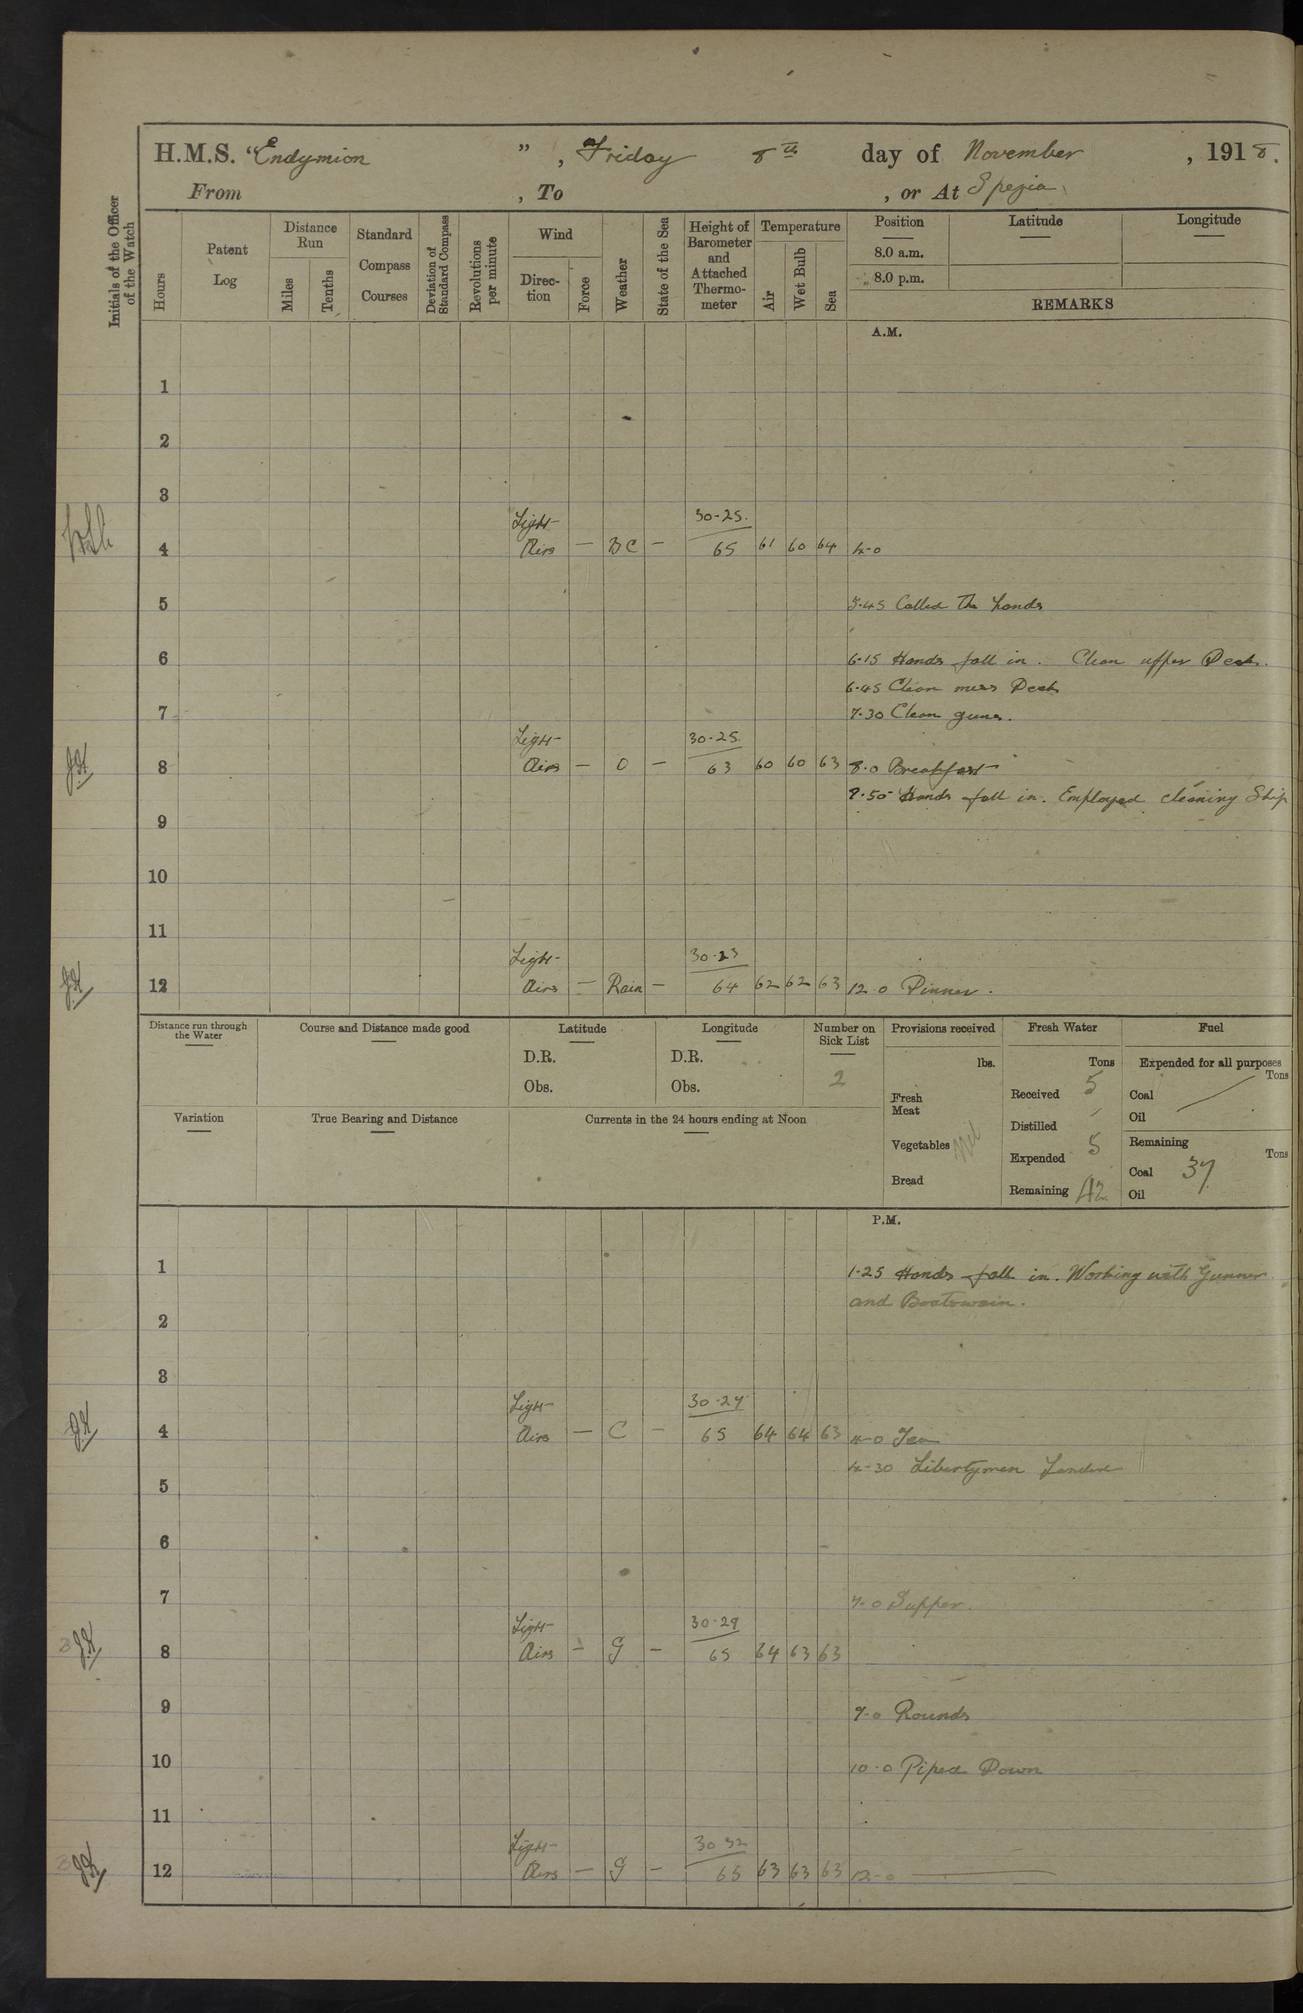 H.M.S. "Endymion ", Friday 8th day of November, 1918.
From , To , or At Spezia
Initials of the Officer of the Watch
Hours
Patent Log
Distance Run
Miles
Tenths
Standard Compass Courses
Deviation of Standard Compass
Revolutions per minute
Wind
Direction
Force
Weather
State of the Sea
Height of Barometer and Attached Thermometer
Temperature
Air
Wet Bulb
Sea
Position
Latitude
Longitude
8.0 a.m.
8.0 p.m.
REMARKS
A.M.
1
2
3
Light 30-25.
4 Airs — BC — 65 61 60 64 4-0
5 5.45 Called The hands
6 6.15 Hands fall in. Clean upper Deck.
6.45 Clean mess Deck
7 7.30 Clean guns.
Light 30-25.
8 Airs — O — 63 60 60 63 8.0 Breakfast
8.50 Hands fall in. Employed cleaning Ship
9
10
11
Light 30-23
12 Airs — Rain — 64 62 62 63 12.0 Dinner.
Distance run through the Water
Course and Distance made good
Latitude
D.R.
Obs.
Longitude
D.R.
Obs.
Number on Sick List
2
Provisions received
lbs.
Fresh Meat
Vegetables Nil
Bread
Fresh Water
Tons
Received 5
Distilled /
Expended 5
Remaining 42
Fuel
Expended for all purposes
Tons
Coal
Oil
Remaining
Tons
Coal 37
Oil
Variation
True Bearing and Distance
Currents in the 24 hours ending at Noon
P.M.
1 1.25 Hands fall in. Working with Gunner
and Boatswain.
2
3
Light
4 Airs — C — 65 64 64 63 4-0 Tea
4-30 Libertymen Landed
5
6
7 7.0 Supper.
Light 30.29
8 Airs — G — 65 64 63 63
9 9.0 Rounds
10 10.0 Piped Down
11
Light 30 32
12 Airs — G — 65 63 63 63 12-0